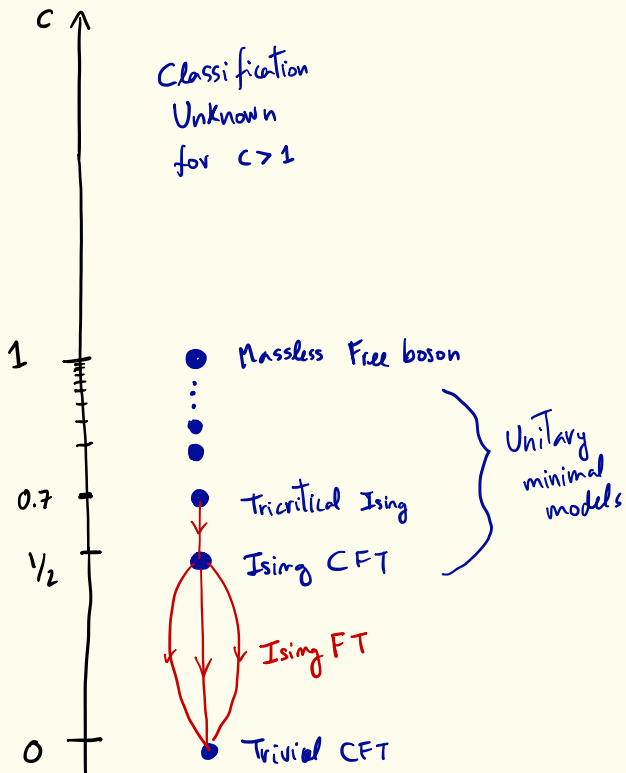 C
Classification
Unknown
for c > 1
1
Massless Free boson
Unitary
minimal
models
0.7
Tricritical Ising
1/2
Ising CFT
Ising FT
0
Trivial CFT